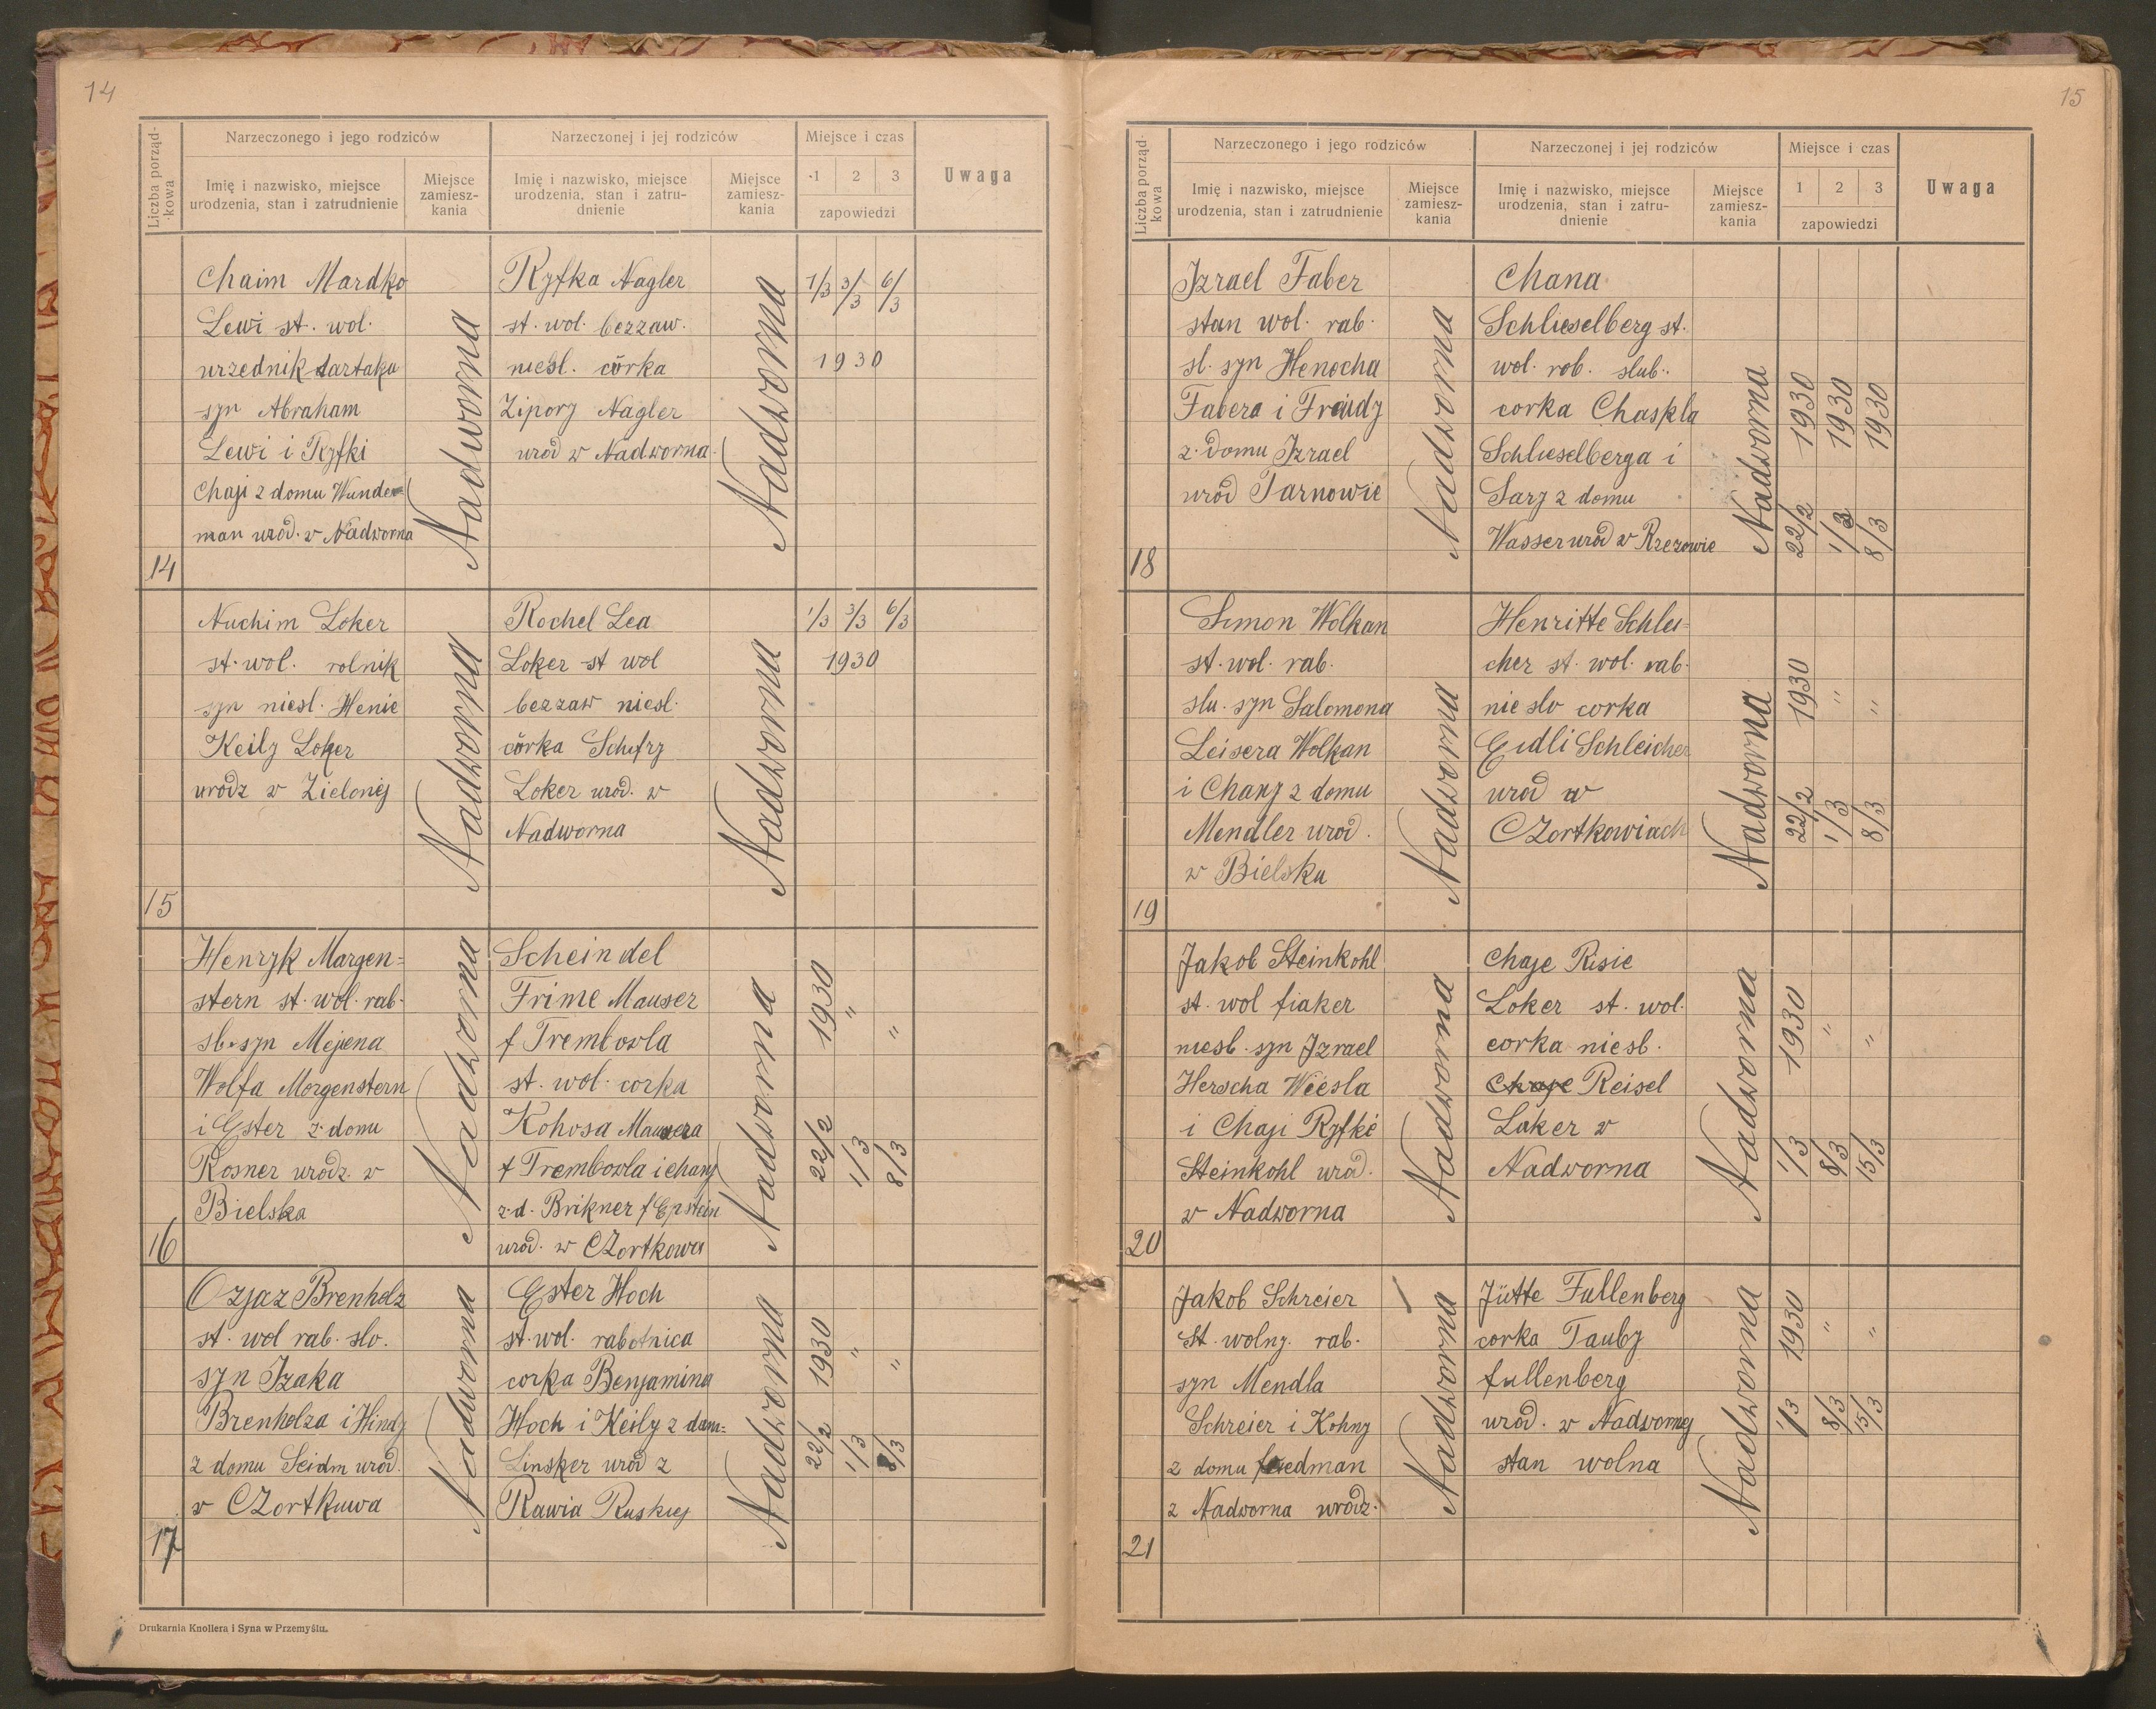 14
Liczba porząd-
kowa
Narzeczonego i jego rodziców
Imię i nazwisko, miejsce
urodzenia, stan i zatrudnienie
Miejsce
zamiesz-
kania
Narzeczonej i jej rodziców
Imię i nazwisko, miejsce
urodzenia, stan i zatru-
dnienie
Miejsce
zamiesz-
kania
Miejsce i czas
1 2 3
zapowiedzi
Uwaga
14
Chaim Mardko
Lewi st. wol.
urzednik tartaku
syn Abraham
Lewi i Ryfki
Chaji z domu Wunder=
man uród. w Nadworna
Nadworna
Ryfka Nagler
st. wol. bezzaw.
niesl. córka
Zipory Nagler
uród w Nadworna.
Nadworna
1/3 3/3 6/3
1930
15
Nuchim Loker
st. wol. rolnik
syn niesl. Henie
Keily Loker
urodz w Zielonej
Nadworna
Rochel Lea
Loker st wol
bezzaw niesl.
córka Schifry
Loker urod. w
Nadworna
Nadworna
1/3 3/3 6/3
1930
16
Henryk Morgen=
stern st. wol. rab.
sl. syn Mejena
Wolfa Morgenstern
i Ester z domu
Rosner urodz. w
Bielska
Nadworna
Scheindel
Frime Mauser
f Trembowla
st. wol. corka
Kohosa Mausera
f Trembowla i chany
z.d. Brikner f Epstein
urod. w CZortkowa
Nadworna
22/2 1930
1/3 "
8/3 "
17
Ozjaz Brenholz
st. wol rab. slo.
syn Izaka
Brenholza i Hindy
z domu Seidm urod.
w CZortkuwa
Nadworna
Ester Hoch
st. wol. rabotnica
corka Benjamina
Hoch i Keily z dom=
Linsker uród z
Rawia Ruskiej
Nadworna
22/2 1930
1/3 "
8/3 "
Drukarnia Knollera i Syna w Przemyślu.
15
Liczba porząd-
kowa
Narzeczonego i jego rodziców
Imię i nazwisko, miejsce
urodzenia, stan i zatrudnienie
Miejsce
zamiesz-
kania
Narzeczonej i jej rodziców
Imię i nazwisko, miejsce
urodzenia, stan i zatru-
dnienie
Miejsce
zamiesz-
kania
Miejsce i czas
1 2 3
zapowiedzi
Uwaga
18
Izrael Faber
stan wol. rab.
sl. syn Henocha
Fabera i Freidy
z domu Izrael
uród Tarnowie
Nadworna
Chana
Schlieselberg st.
wol. rob. slub.
corka Chaskla
Schlieselberga i
Sary z domu
Wasser uród w Rzezowie
Nadworna
22/2 1930
1/3 1930
8/3 1930
19
Simon Wolkan
st. wol. rab.
slu. syn Salomona
Leisera Wolkan
i Chany z domu
Mendler uród.
w Bielsku
Nadworna
Henritte Schlei=
cher st. wol. rab.
nie slo corka
Eidli Schleicher
uród w
CZortkowiach
Nadworna
22/2 1930
1/3 "
8/3 "
20
Jakob Steinkohl
st. wol fiaker
niesl. syn Izrael
Herscha Wiesla
i Chaji Ryfke
Steinkohl urod.
w Nadworna
Nadworna
Chaje Risie
Loker st. wol.
corka niesl.
Chaje Reisel
Loker w
Nadworna
Nadworna
1/3 1930
8/3 "
15/3 "
21
Jakob Schreier
St. wolny. rab.
syn Mendla
Schreier i Kohny
z domu Friedman
z Nadworna urodz.
Nadworna
Jütte Fullenberg
corka Tauby
fullenberg
urod. w Nadwornej
stan wolna
Nadworna
1/3 1930
8/3 "
15/3 "